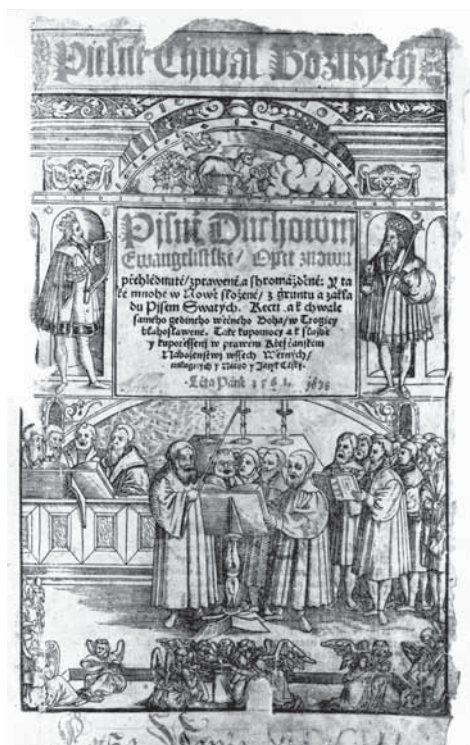 Piesně Chwal Božských
Pisně Duchownj
Ewangelistské / Opět znowu
přehlédnuté / zprawené a shromážděné: Y ta
ké mnohé w nowě složené / z gruntu a zákla
du Pisem Swatých. Kečti a k chwále
samého gediného wěčného Boha / w Trogicy
blahoslaweného. Také kupomocy a k službě
y kupotěssenj w prawém Křesťanském
Náboženstwj wssech Wěrných /
milugjcých y Národ y Jazyk Český.
Léta Páně 1561.